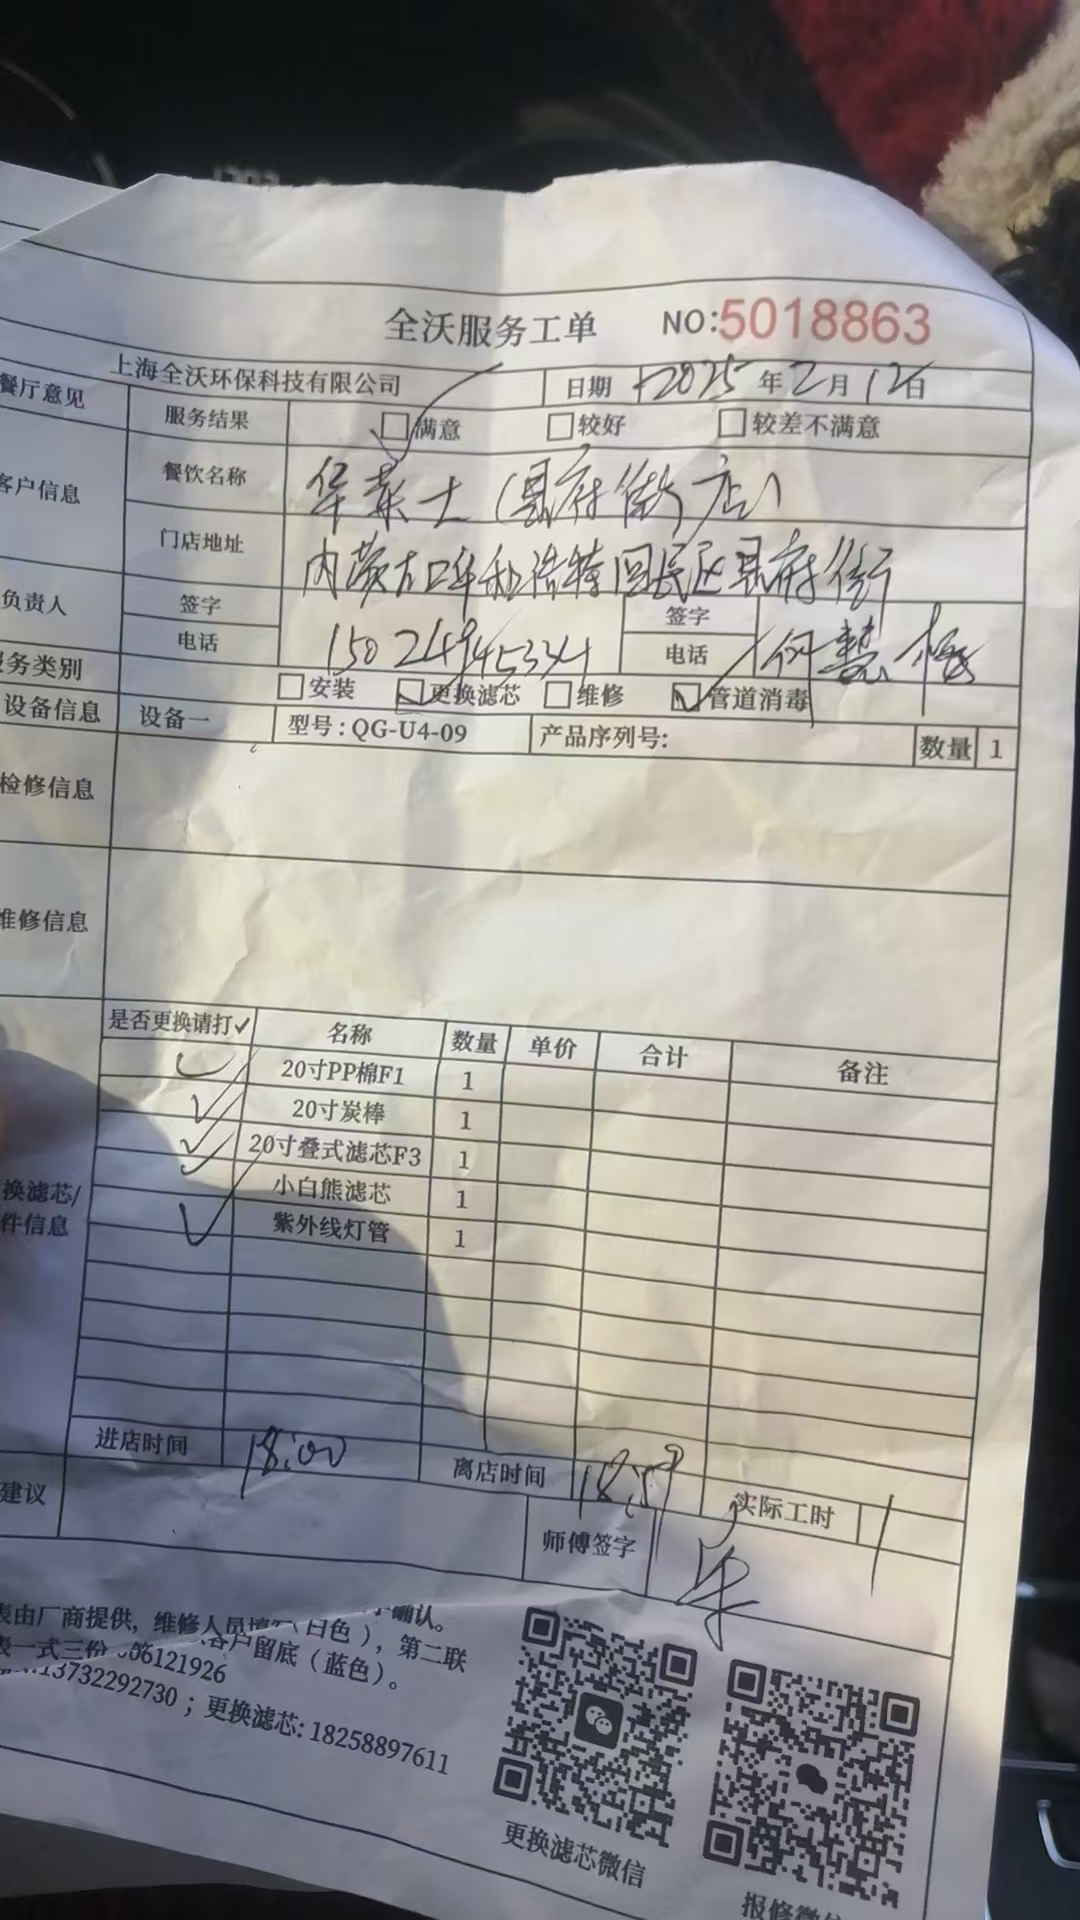 全沃服务工单 NO:5018863
上海全沃环保科技有限公司 日期 2025年2月12日
餐厅意见 服务结果 满意 较好 较差不满意
客户信息 餐饮名称 华莱士(县府街店)
门店地址 内蒙古呼和浩特回民区县府街
负责人 签字 签字
电话 15024945341 电话 何慧梅
服务类别 安装 更换滤芯 维修 管道消毒
设备信息 设备一 型号:QG-U4-09 产品序列号: 数量 1
检修信息
维修信息
是否更换请打✓ 名称 数量 单价 合计 备注
✓ 20寸PP棉F1 1
✓ 20寸炭棒 1
✓ 20寸叠式滤芯F3 1
✓ 小白熊滤芯 1
✓ 紫外线灯管 1
换滤芯/
件信息
进店时间 18:00 离店时间 18:59 实际工时 1
建议 师傅签字
表由厂商提供,维修人员填写(白色),第二联
表一式三份 客户留底(蓝色)。
确认。
06121926
13732292730;更换滤芯:18258897611
更换滤芯微信
报修微信